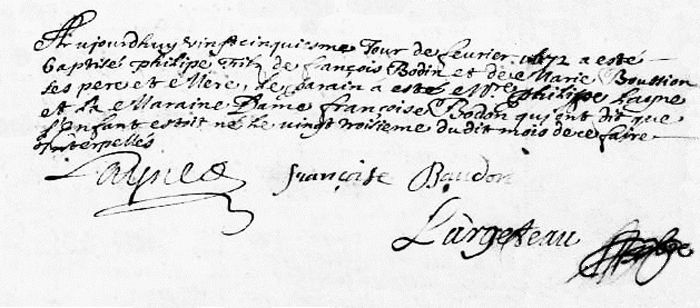 Aujourdhuy vingtcinquiesme Jour de fevrier 1672 a esté
baptisé philipe Filz de françois Bodin et de Marie Boussion
ses pere et Mere, Le parain a esté Mre philippe Layné
et La Maraine Dame francoise Bodon qui ont dit que
L'Enfant estoit né Le vingt troisieme dudit mois de ce faire
interpellés
Laynée francoise Baudon
Largeteau